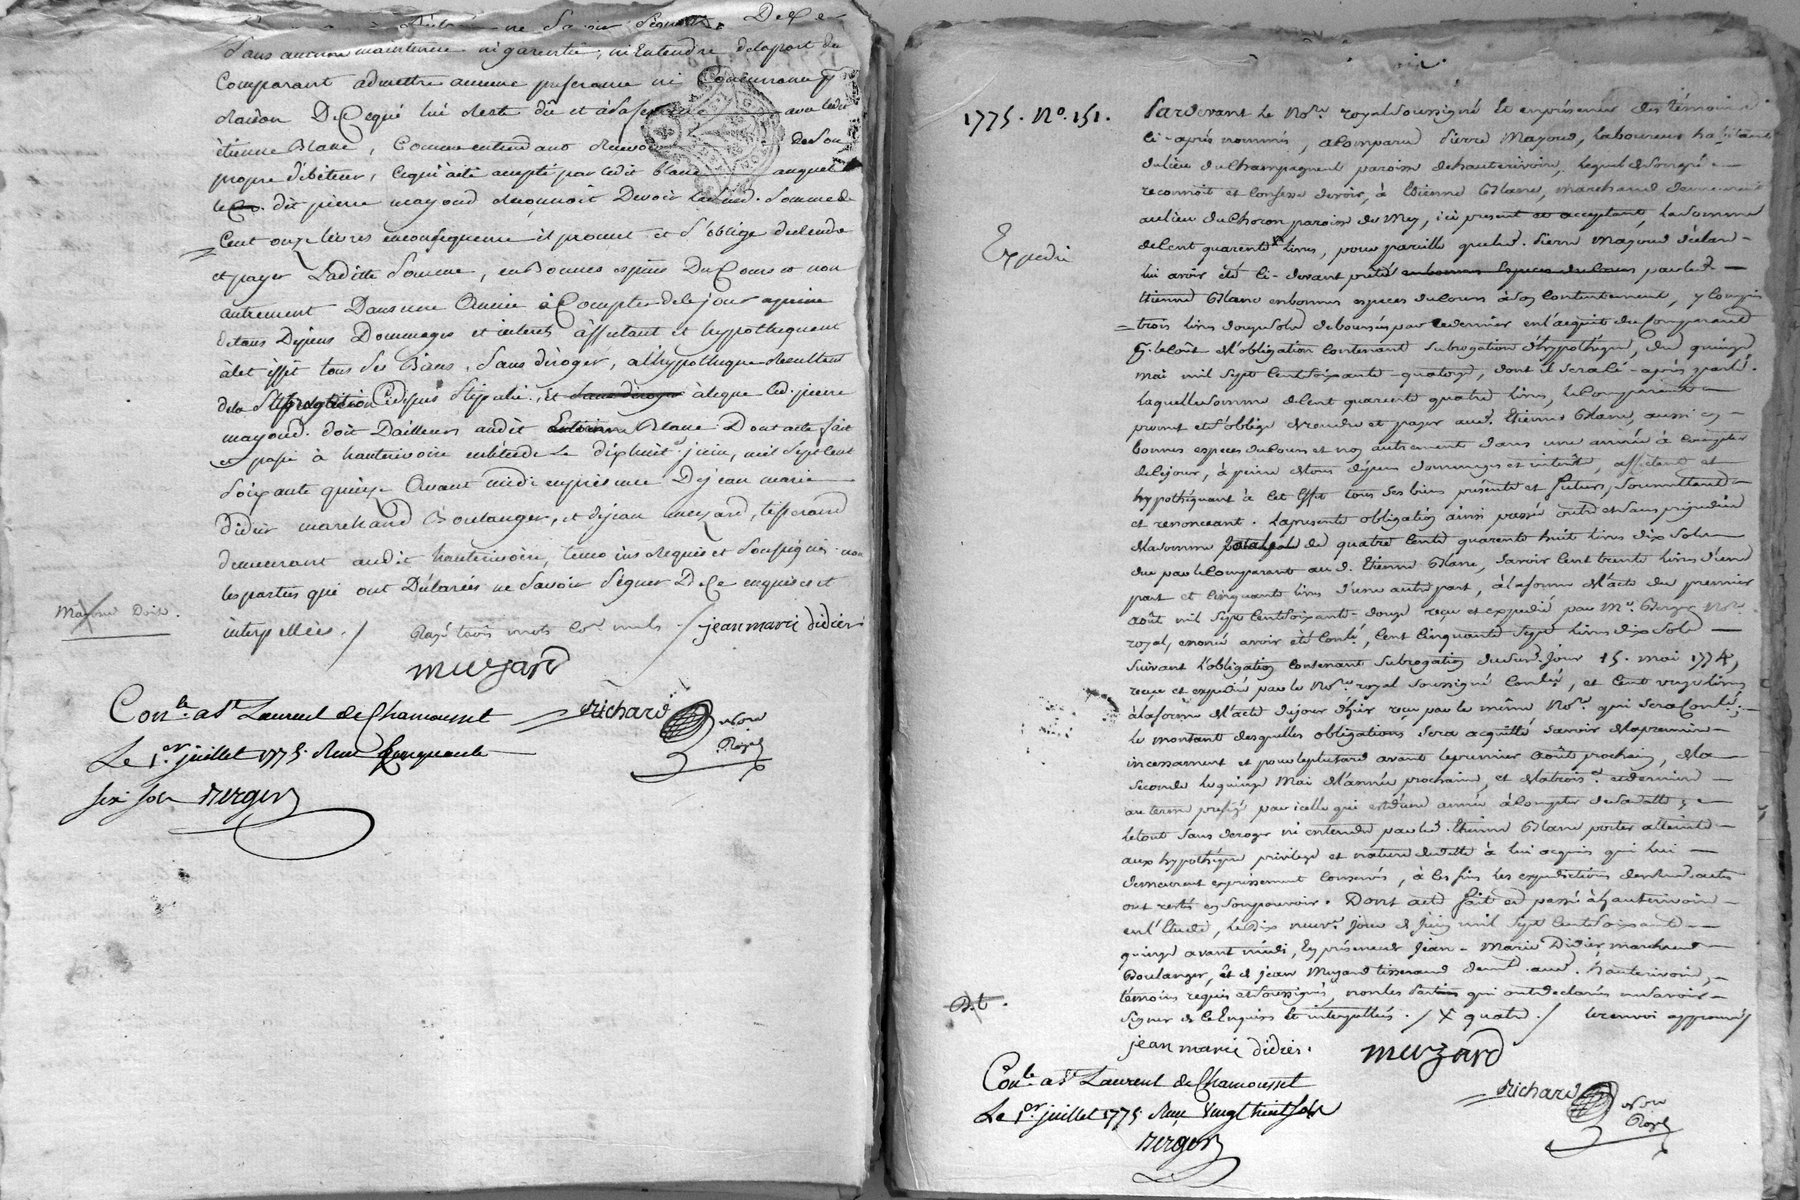 ne savoir signer De Ce
Sans aucune maintenue ni garentie, ni Entendre delapart du
Comparant admettre aucune preferance ni Concurrance
Raison De Ce qui lui Reste dû et àlaf avec ledit
étienne Blanc, Comme entendant deson
propre débiteur, Cequi a été accepté par ledit blanc auquel
le dit pierre mayoud Reconnoit Devoir Somme de
Cent onze livres enconsequence il promet et S'oblige de Rendre
et payer Laditte Somme, enBonnes espèces Du Cours et non
autrement Dans une Année à Compter de ce jour apeine
detous Dépens Dommages et interets affectant et hypothequant
àCet effet tous Ses Biens, Sans déroger, a l'hypotheque Resultant
dela Cidepuis Stipulée, Et Sans déroger àceque ledit pierre
mayoud doit D'ailleurs audit Blanc Dont acte fait
et passé à hauterivoire enl'étude Le dixhuit juin, mil Sept Cent
Soixante quinze Avant midi en présence De jean marie
didier marchand Boulanger, et de jean muzard, tisserand
demeurant audit hauterivoire, temoins Requis et Soussignés non
les parties qui ont Déclarées ne Savoir Signer De Ce enquises et
interpellées. / Rayé trois mots Comme nuls / jean marie didier
muzard
Con.le a St Laurent de Chamousset Richard Nore
Le 1.er juillet 1775. Reçu Cinquante Royal
six sols Berger
1775. No. 151.
Expedié
Pardevant le No.re royal Soussigné Et en présence des témoins
Ci-après nommés, a Comparu Pierre Mayoud, laboureur habitant
du lieu du Champagnent paroisse de hauterivoire, lequel de son gré
reconnoit et Confesse devoir, à Etienne Blanc, marchand demeurant
au lieu du Choron paroisse de Mey, ici present et acceptant, la Somme
de Cent quarente livres, pour pareille que led. Pierre Mayoud déclare
lui avoir été Ci-devant prêté en bonnes Especes du Cours par led.
Etienne Blanc en bonnes especes du Cours à Son Contentement, y Compris
trois livres douze Sols deboursés par ce dernier en l'acquit du Comparant
p. le Coût de l'obligation Contenant Subrogation d'hypothéque, du quinze
mai mil Sept Cent Soixante-quatorze, dont il sera Ci-après parlé.
laquelle Somme de Cent quarente quatre livres, le Comparant
promet et s'oblige de rendre et payer aud. Etienne Blanc, aussi en
bonnes especes du Cours et non autrement dans une année à Compter
de Ce jour, à peine de tous dépens dommages et intérêts, affectant et
hypothéquant à Cet Effet tous Ses biens présents et futurs, Soumettant
et renonceant. La presente obligation ainsi passée outre et Sans préjudice
de la Somme de quatre Cents quarente huit livres dix Sols
due par le Comparant au d. Etienne Blanc, Savoir Cent trente livres d'une
part et Cinquante livres d'une autre part, à la forme de l'acte du premier
août mil Sept Cent Soixante-douze reçu et expedié par Me. Berger No.re
royal, énoncé avoir été Conlé, Cent Cinquante Sept livres dix Sols
Suivant l'obligation Contenant Subrogation du Sus. Jour 15. mai 1774,
reçue et expediée par le No.re royal Soussigné Conlée, et Cent onze livres
à la forme de l'acte du jour d'hier reçu par le même No.re qui sera Conlé;
le montant desquelles obligations Sera acquitté Savoir de la premiere
incessament et pour le plus tard avant le premier Août prochain, de la
Seconde le quinze Mai de l'année prochaine, et de la trois.e et derniere
au terme préfigé par icelle qui est d'une année à Compter de Sa datte;
le tout Sans deroger ni entendre par led. Etienne Blanc porter atteinte
aux hypothéque privilege et nature de dette à lui acquis qui lui
demeurent expressement Conservés, à Ces fins les expeditions desdits actes
ont restés en Son pouvoir. Dont acte fait et passé à hauterivoire
en l'Etude, le Dix neuv.e jour de Juin mil Sept Cent Soixante
quinze avant midi, En présence de Jean-Marie Didier marchand
Boulanger, et de jean Muzard tisserand dem.t aud. hauterivoire,
témoins requis et Soussignés, non les Parties qui ont declarés ne Savoir
Signer de Ce Enquises Et interpellées. / X quatre / le renvoi approuvé /
jean marie didier. muzard
Con.le a St Laurent de Chamousset Richard Nore
Le 1.er juillet 1775. Reçu Vingt huit sols Royal
Berger